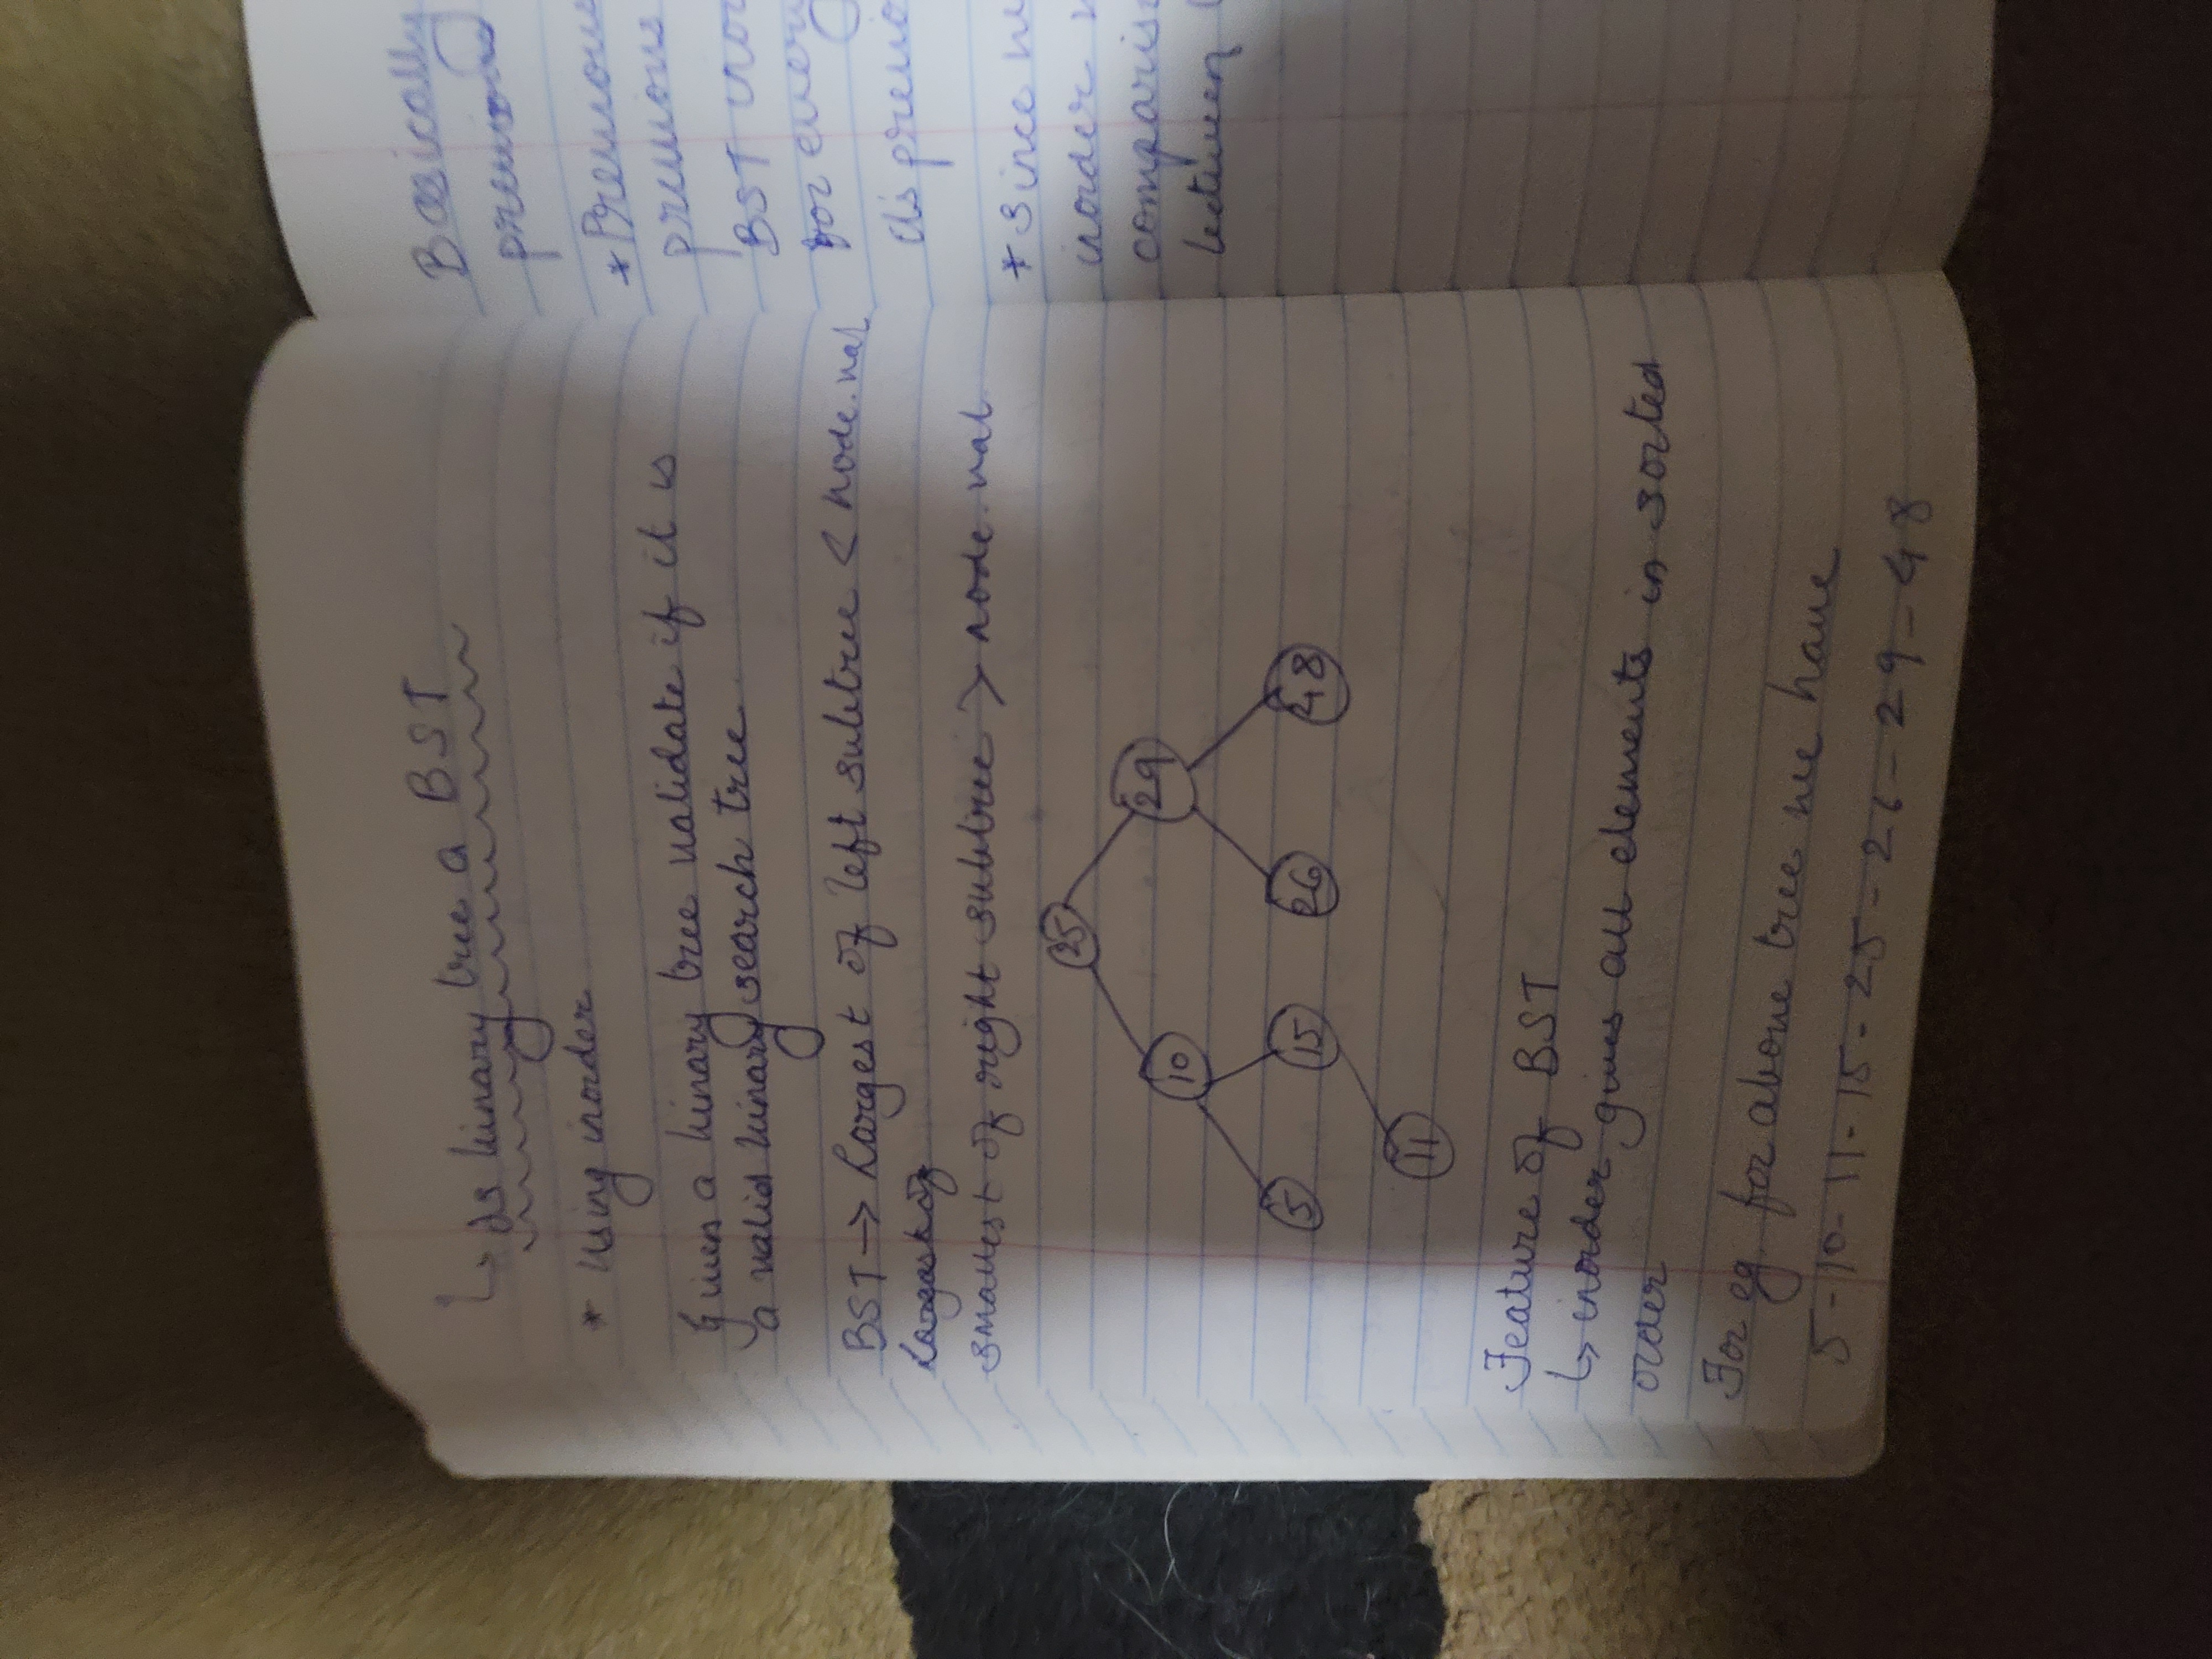 ↳ Is binary tree a BST
* Using inorder
Given a binary tree validate if it is
a valid binary search tree
BST → Largest of left subtree < node.val
Largest of
smallest of right subtree > node.val
25
10 29
5 15 26 48
11
Feature of BST
↳ inorder gives all elements in sorted
order
For eg. for above tree we have
5 - 10 - 11 - 15 - 25 - 26 - 29 - 48
Basically
previous
* Previous
previous
BST
for every
Is
* Since
inorder
between